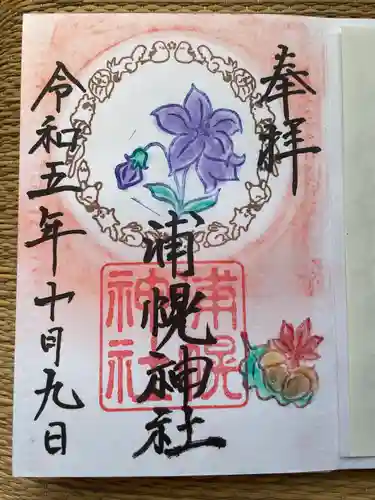 奉拝
浦幌神社
浦幌神社
令和五年十月九日